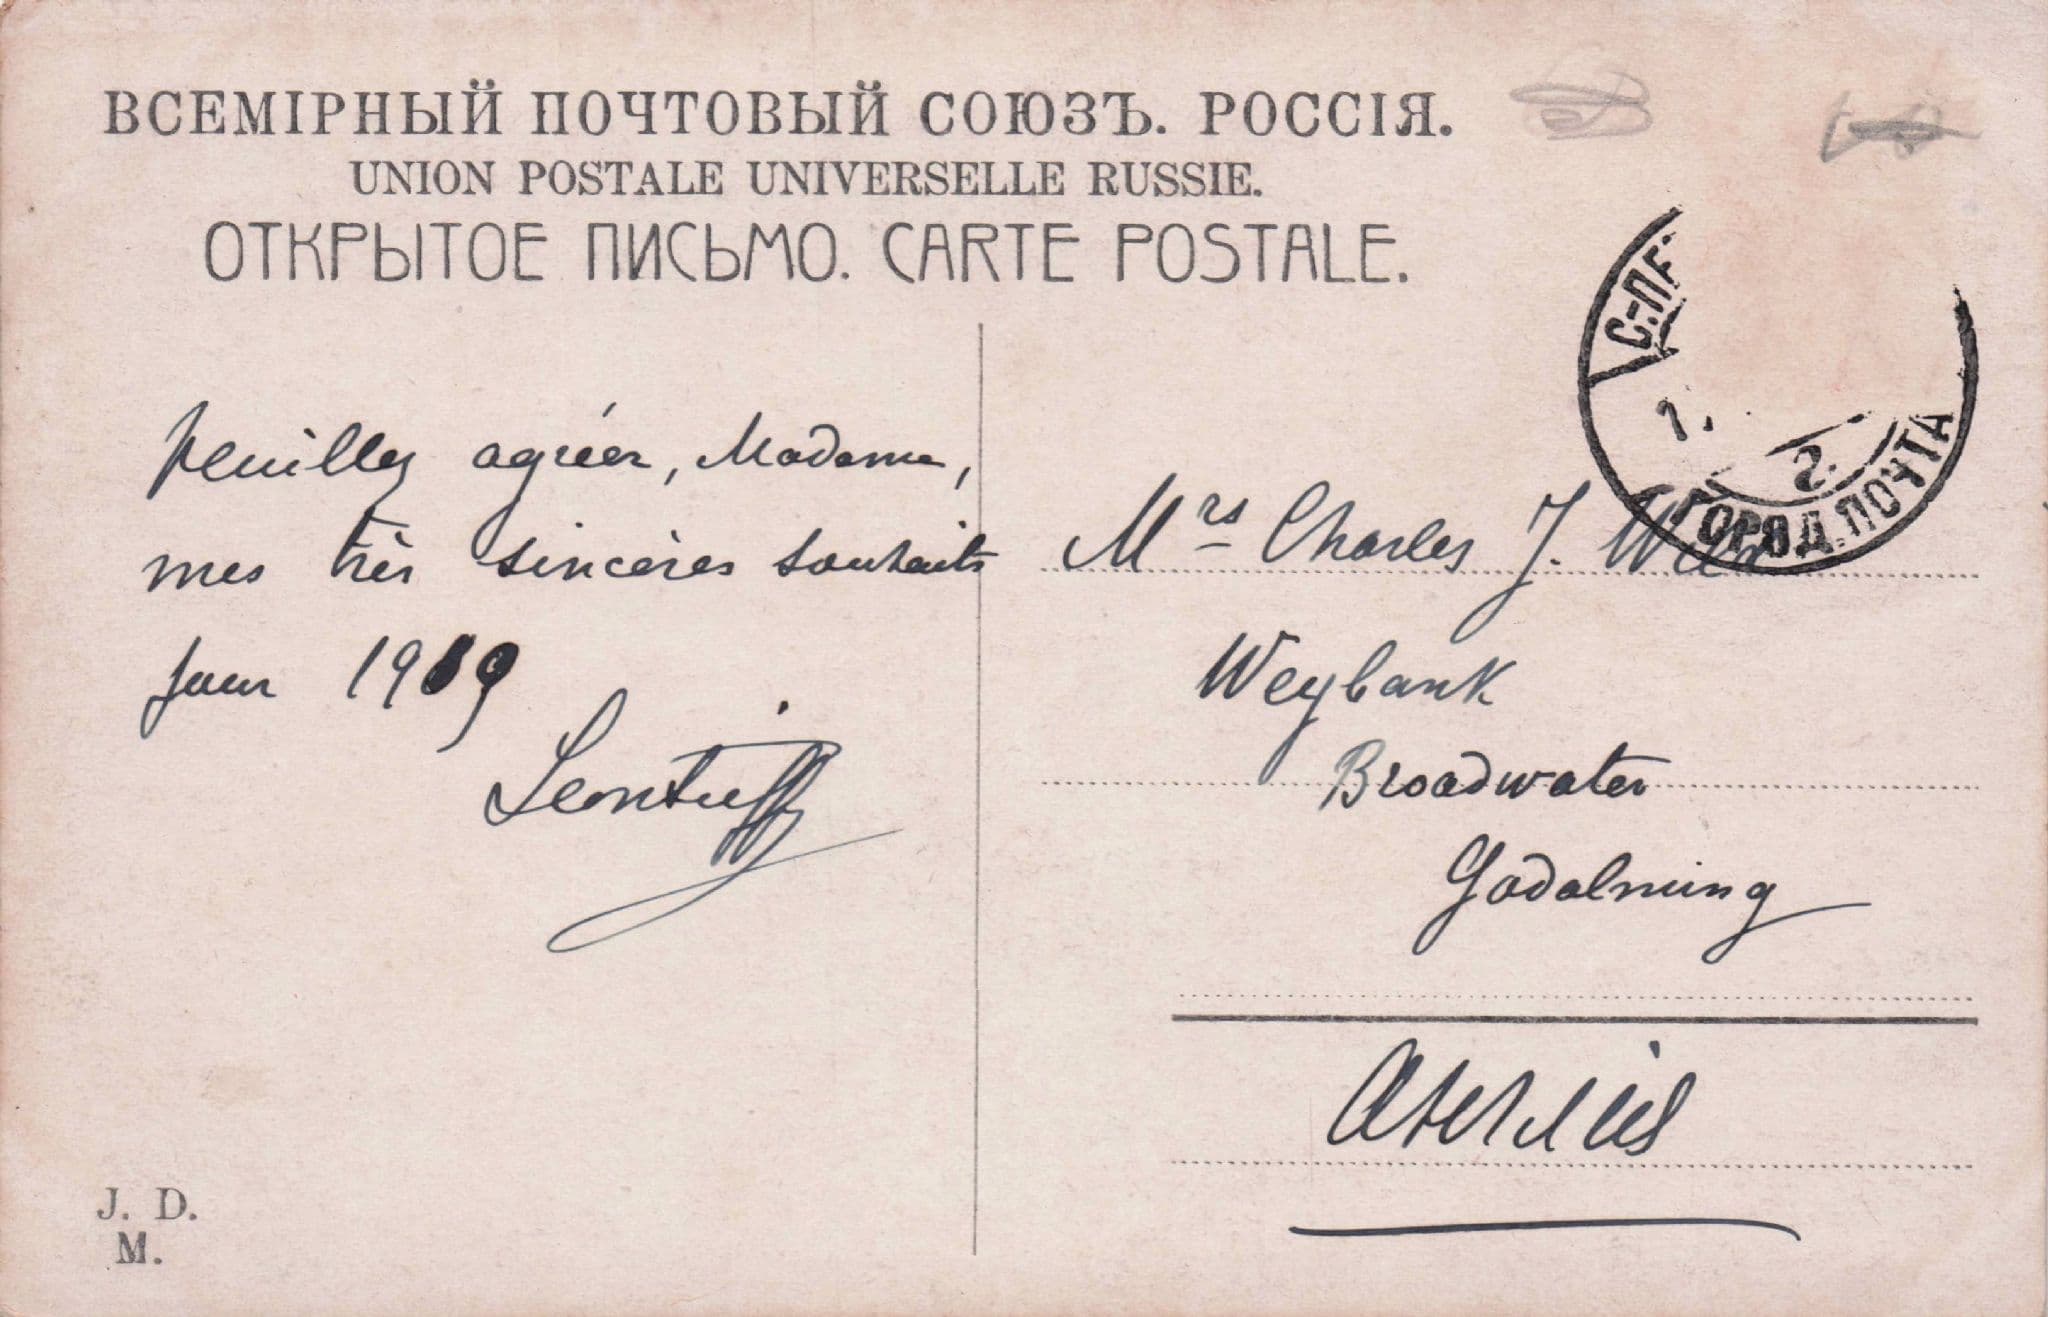 ВСЕМІРНЫЙ ПОЧТОВЫЙ СОЮЗЪ. РОССІЯ.
UNION POSTALE UNIVERSELLE RUSSIE.
ОТКРЫТОЕ ПИСЬМО. CARTE POSTALE.
С-ПЕ
1.
2.
ГОРОД. ПОЧТА
Veuillez agréer, Madame,
mes très sincères souhaits
pour 1909
Leontieff
Mrs Charles J.
Weybank
Broadwater
Godalming
Англія
J. D.
M.